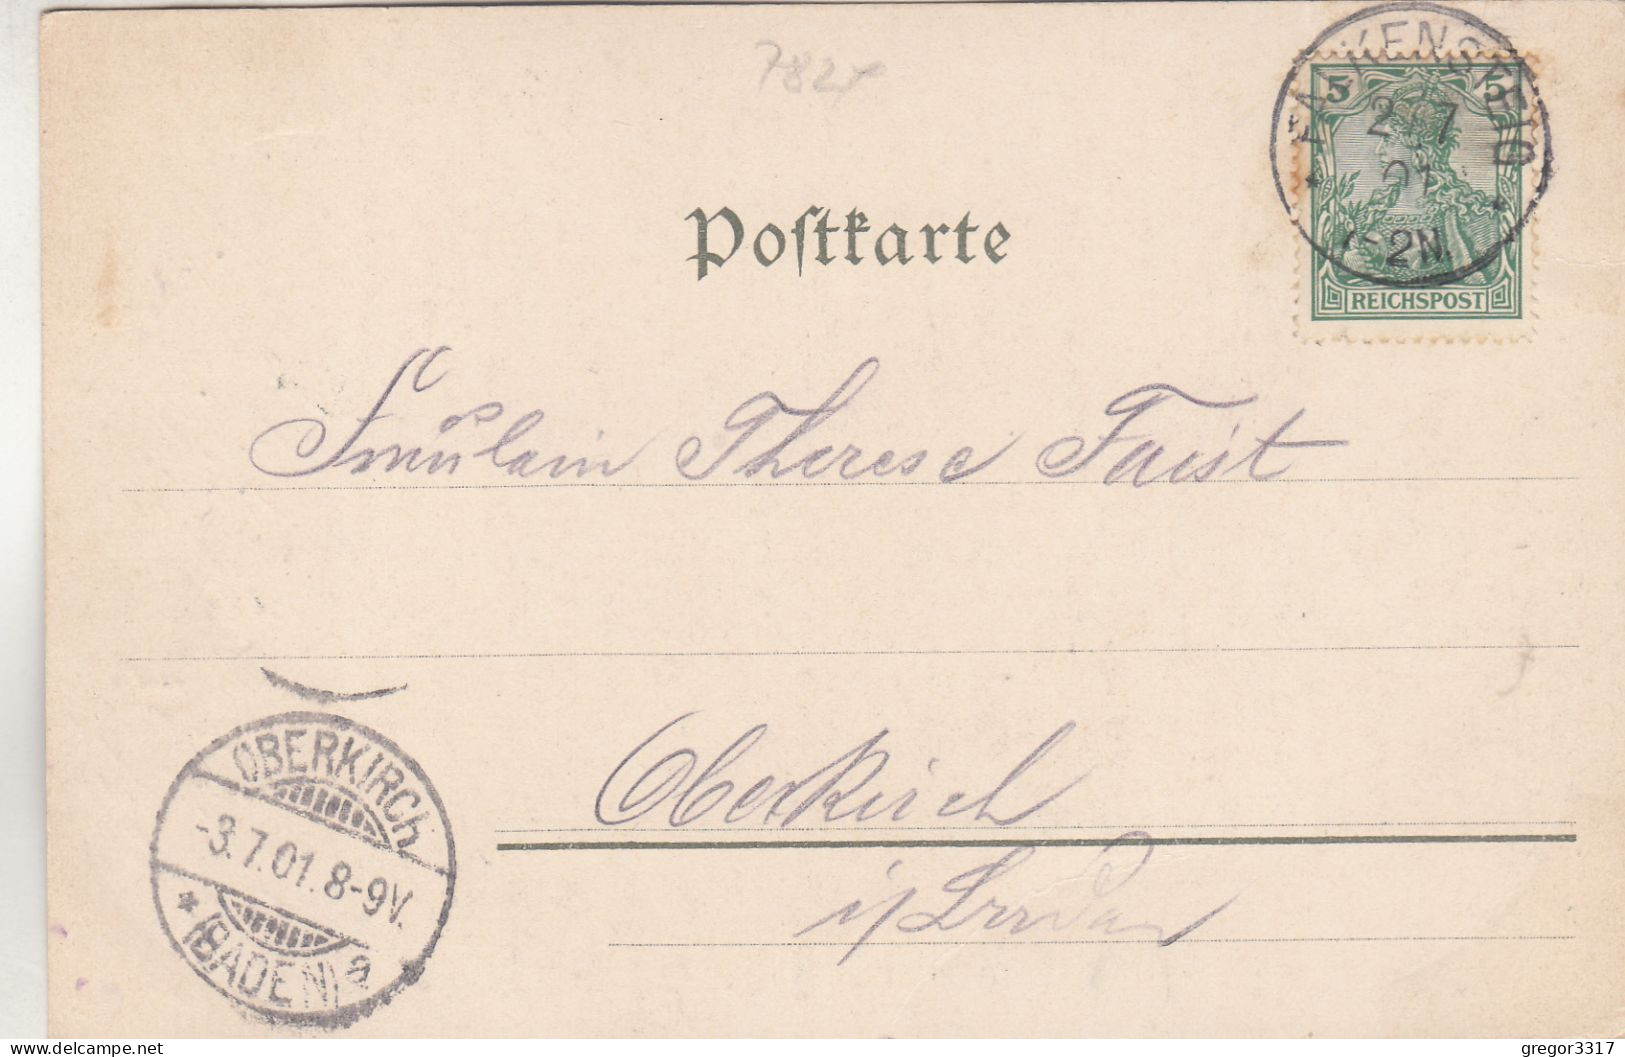 782
FALKENSTEIN
2 7
01
1-2N.
5 5
REICHSPOST
Postkarte
Fräulein Therese Faist
Oberkirch
i/Baden
OBERKIRCH
-3.7.01.8-9V.
* (BADEN) a *
delcampe.net
gregor3317